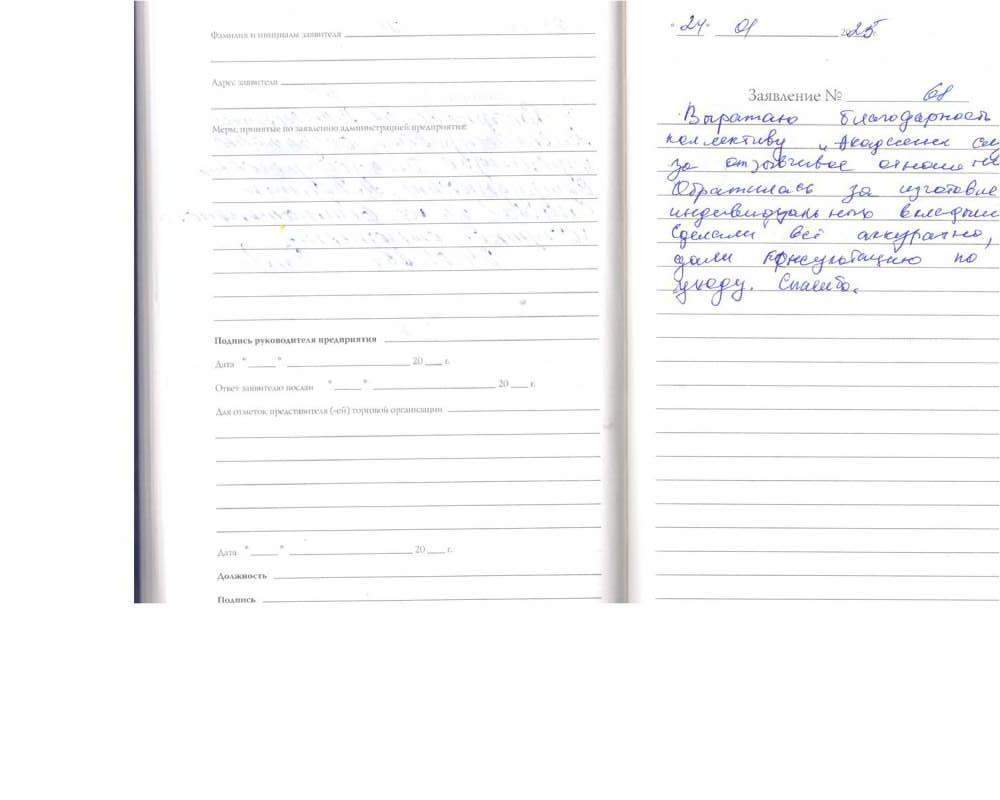 Фамилия и инициалы заявителя
Адрес заявителя
Меры, принятые по заявлению администрацией предприятия:
Подпись руководителя предприятия
Дата " " 20 г.
Ответ заявителю послан " " 20 г.
Для отметок представителя (-ей) торговой организации
Дата " " 20 г.
Должность
Подпись
"24" 01 25г.
Заявление № 68
Выражаю благодарность
коллективу "Академии
за отзывчивое отноше
Обратилась за изготовле
индивидуальных вкладыш
Сделали всё аккуратно,
дали консультацию по
уходу. Спасибо.